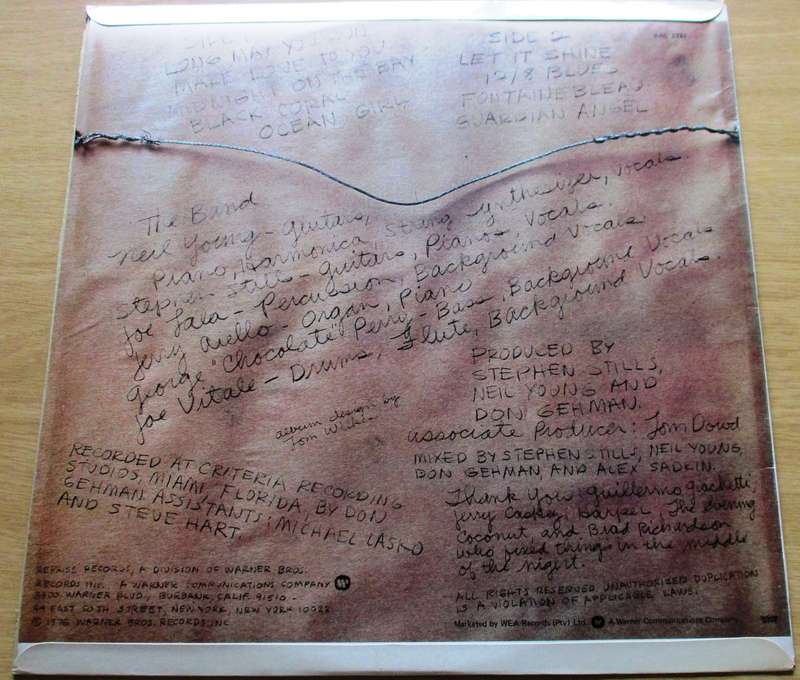 SIDE 1
LONG MAY YOU RUN
MAKE LOVE TO YOU
MIDNIGHT ON THE BAY
BLACK CORAL
OCEAN GIRL
SIDE 2
LET IT SHINE
12/8 BLUES
FONTAINEBLEAU
GUARDIAN ANGEL
The Band
Neil Young - Guitars,
Piano, Harmonica, String Synthesizer, Vocals.
Stephen Stills - Guitars, Pianos, Vocals.
Joe Lala - Percussion, Background Vocals
Jerry Aiello - Organ, Piano
George "Chocolate" Perry - Bass, Background Vocals
Joe Vitale - Drums, Flute, Background Vocals.
album design by
Tom Wilkes
PRODUCED BY
STEPHEN STILLS,
NEIL YOUNG AND
DON GEHMAN.
Associate Producer: Tom Dowd
MIXED BY STEPHEN STILLS, NEIL YOUNG,
DON GEHMAN, AND ALEX SADKIN.
RECORDED AT CRITERIA RECORDING
STUDIOS, MIAMI, FLORIDA, BY DON
GEHMAN ASSISTANTS: MICHAEL LASKO
AND STEVE HART.
Thank You: Guillermo Giachetti
Jerry Caskey, Harper, The evening
Coconut, and Brad Richardson
who fixed things in the middle
of the night.
REPRISE RECORDS, A DIVISION OF WARNER BROS.
RECORDS INC. A WARNER COMMUNICATIONS COMPANY
3300 WARNER BLVD., BURBANK, CALIF. 91510 -
44 EAST 50TH STREET, NEW YORK, NEW YORK 10022
© 1976 WARNER BROS. RECORDS INC
ALL RIGHTS RESERVED. UNAUTHORIZED DUPLICATION
IS A VIOLATION OF APPLICABLE LAWS.
Marketed by WEA Records (Pty) Ltd. A Warner Communications Company